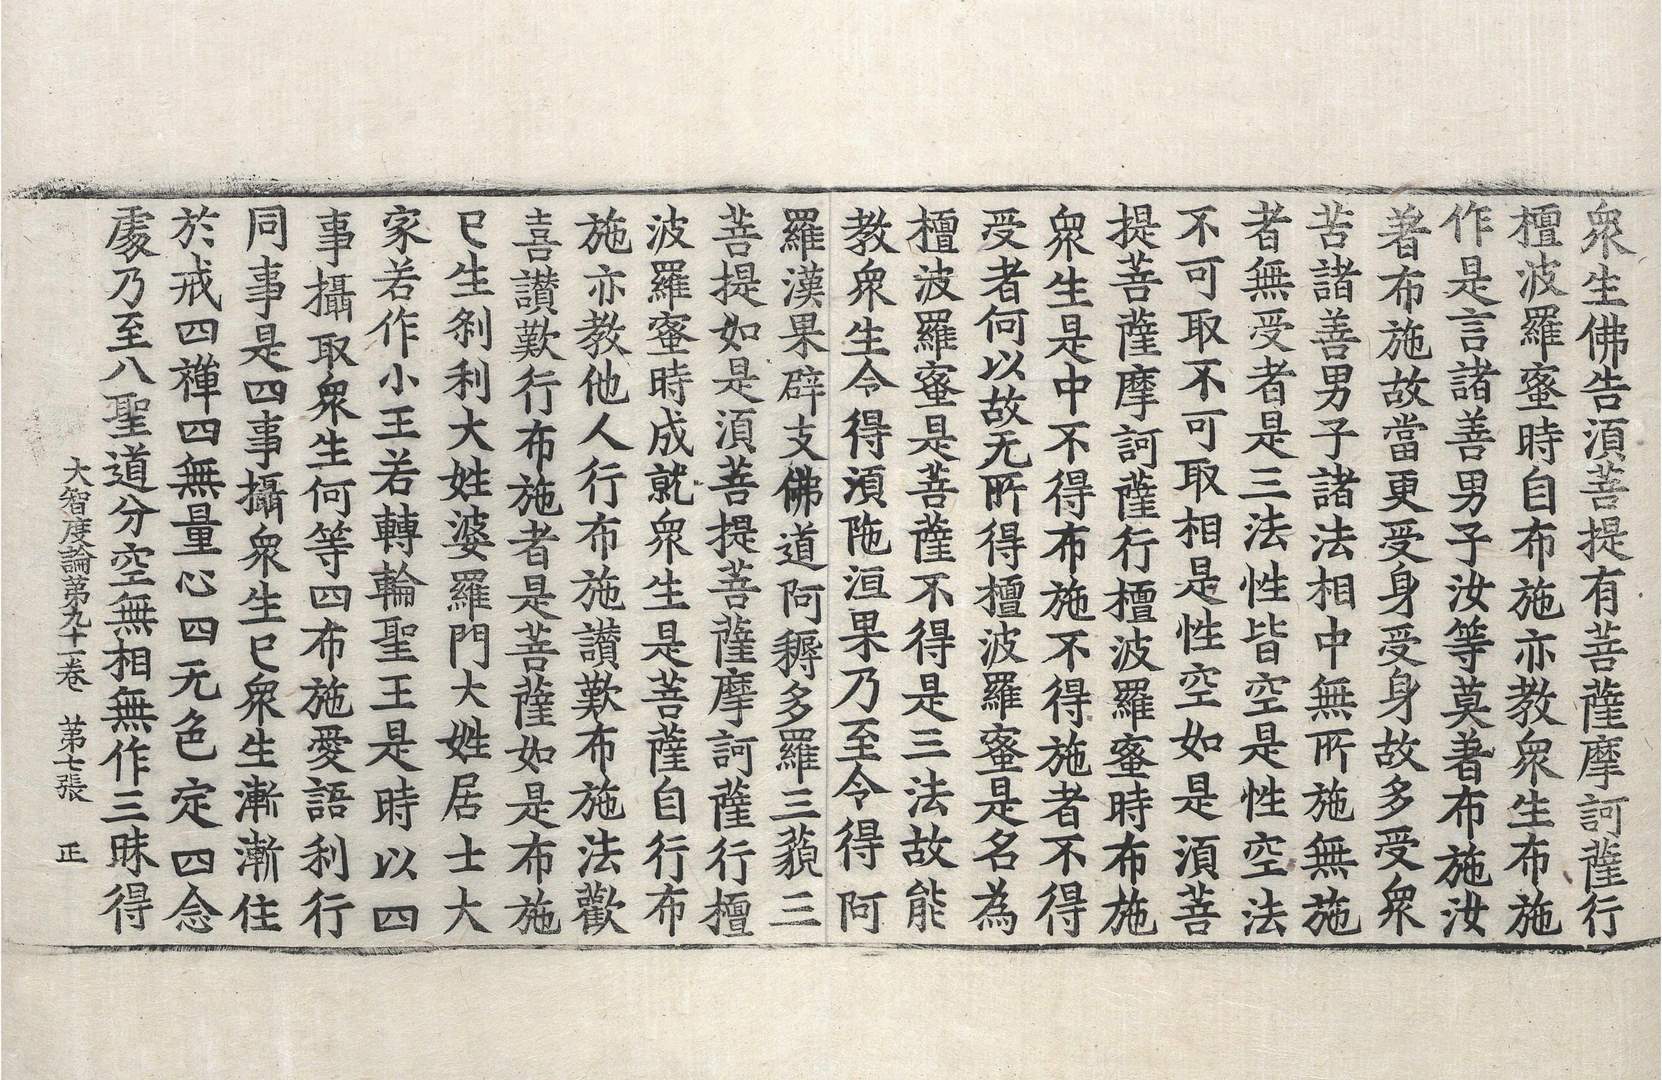 衆生佛告湏菩提有菩薩摩訶薩行
檀波羅蜜時自布施亦教衆生布施
作是言諸善男子汝等莫著布施汝
著布施故當更受身受身故多受衆
苦諸善男子諸法相中無所施無施
者無受者是三法性皆空是性空法
不可取不可取相是性空如是湏菩
提菩薩摩訶薩行檀波羅蜜時布施
衆生是中不得布施不得施者不得
受者何以故无所得檀波羅蜜是名為
檀波羅蜜是菩薩不得是三法故能
教衆生令得湏陁洹果乃至令得阿
羅漢果辟支佛道阿耨多羅三藐三
菩提如是湏菩提菩薩摩訶薩行檀
波羅蜜時成就衆生是菩薩自行布
施亦教他人行布施讃歎布施法歡
喜讃歎行布施者是菩薩如是布施
已生刹利大姓婆羅門大姓居士大
家若作小王若轉輪聖王是時以四
事攝取衆生何等四布施愛語利行
同事是四事攝衆生已衆生漸漸住
於戒四禪四無量心四无色定四念
處乃至八聖道分空無相無作三昧得
大智度論第九十一卷　第七張　正